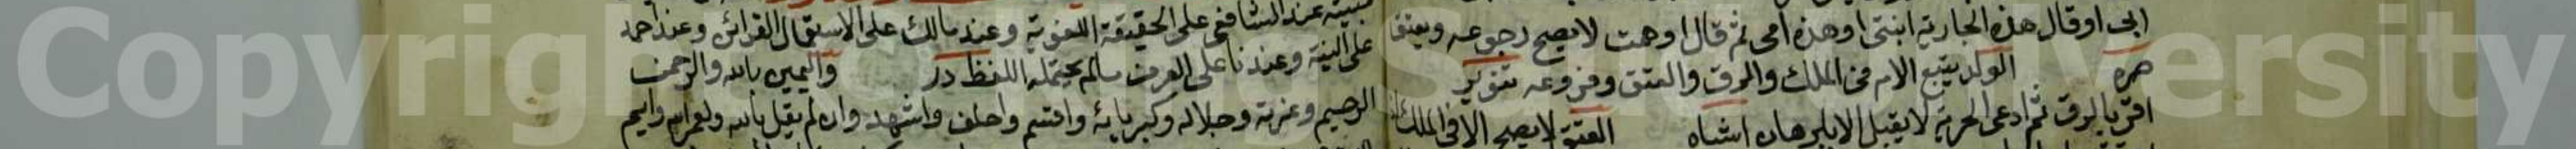 ابنى او قال هذه الجارية ابنتى او هذه امى ثم قال اوهمت لا يصح رجوعه ويعتق
همره الولد يتبع الام فى الملك والرق والعتق وفروعه تنوير
اقر بالرق ثم ادعى الحرية لا يقبل الا ببرهان اشباه العتق لا يصح الا فى الملك
مبنية عند الشافعى على الحقيقة اللغوية وعند مالك على الاستعمال القرآنى وعند احمد
على النية وعندنا على العرف ما لم يحتمله اللفظ درر واليمين بالله والرحمن
الرحيم وعزته وجلاله وكبريائه واقسم واحلف واشهد وان لم يقل بالله ولعمر الله وايم
Copyright versity